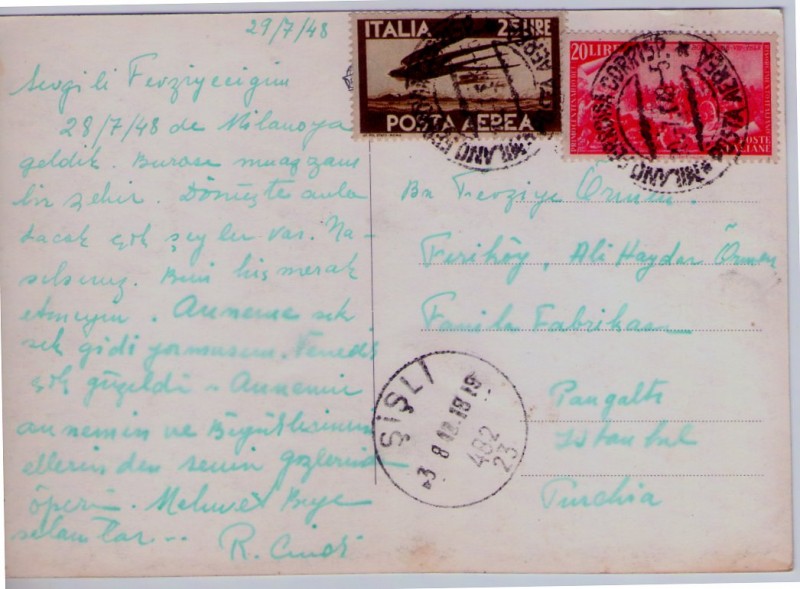 29/7/48
Sevgili Fevziyeciğim
28/7/48 de Milanoya
geldik. Burası muazzam
bir şehir. Dönüşte anla
tacak çok şeyler var. Na-
sılsınız. Beni hiç merak
etmeyin. Anneme sık
sık gidiyormusun. Venedik
çok güzeldi. Annemin
annemin ve
ellerinden senin gözlerinden
öperim. Mehmet Beye
selamlar...
R.
ITALIA 25 LIRE
POSTA AEREA
20 LIRE
POSTE
ITALIANE
MILANO CORRISP
Ba Fevziye Örmen
Feriköy, Ali Haydar Örmen
Fanila Fabrikası
Pangaltı
Istanbul
Turchia
ŞİŞLİ
3 8 48.18 19
482
23